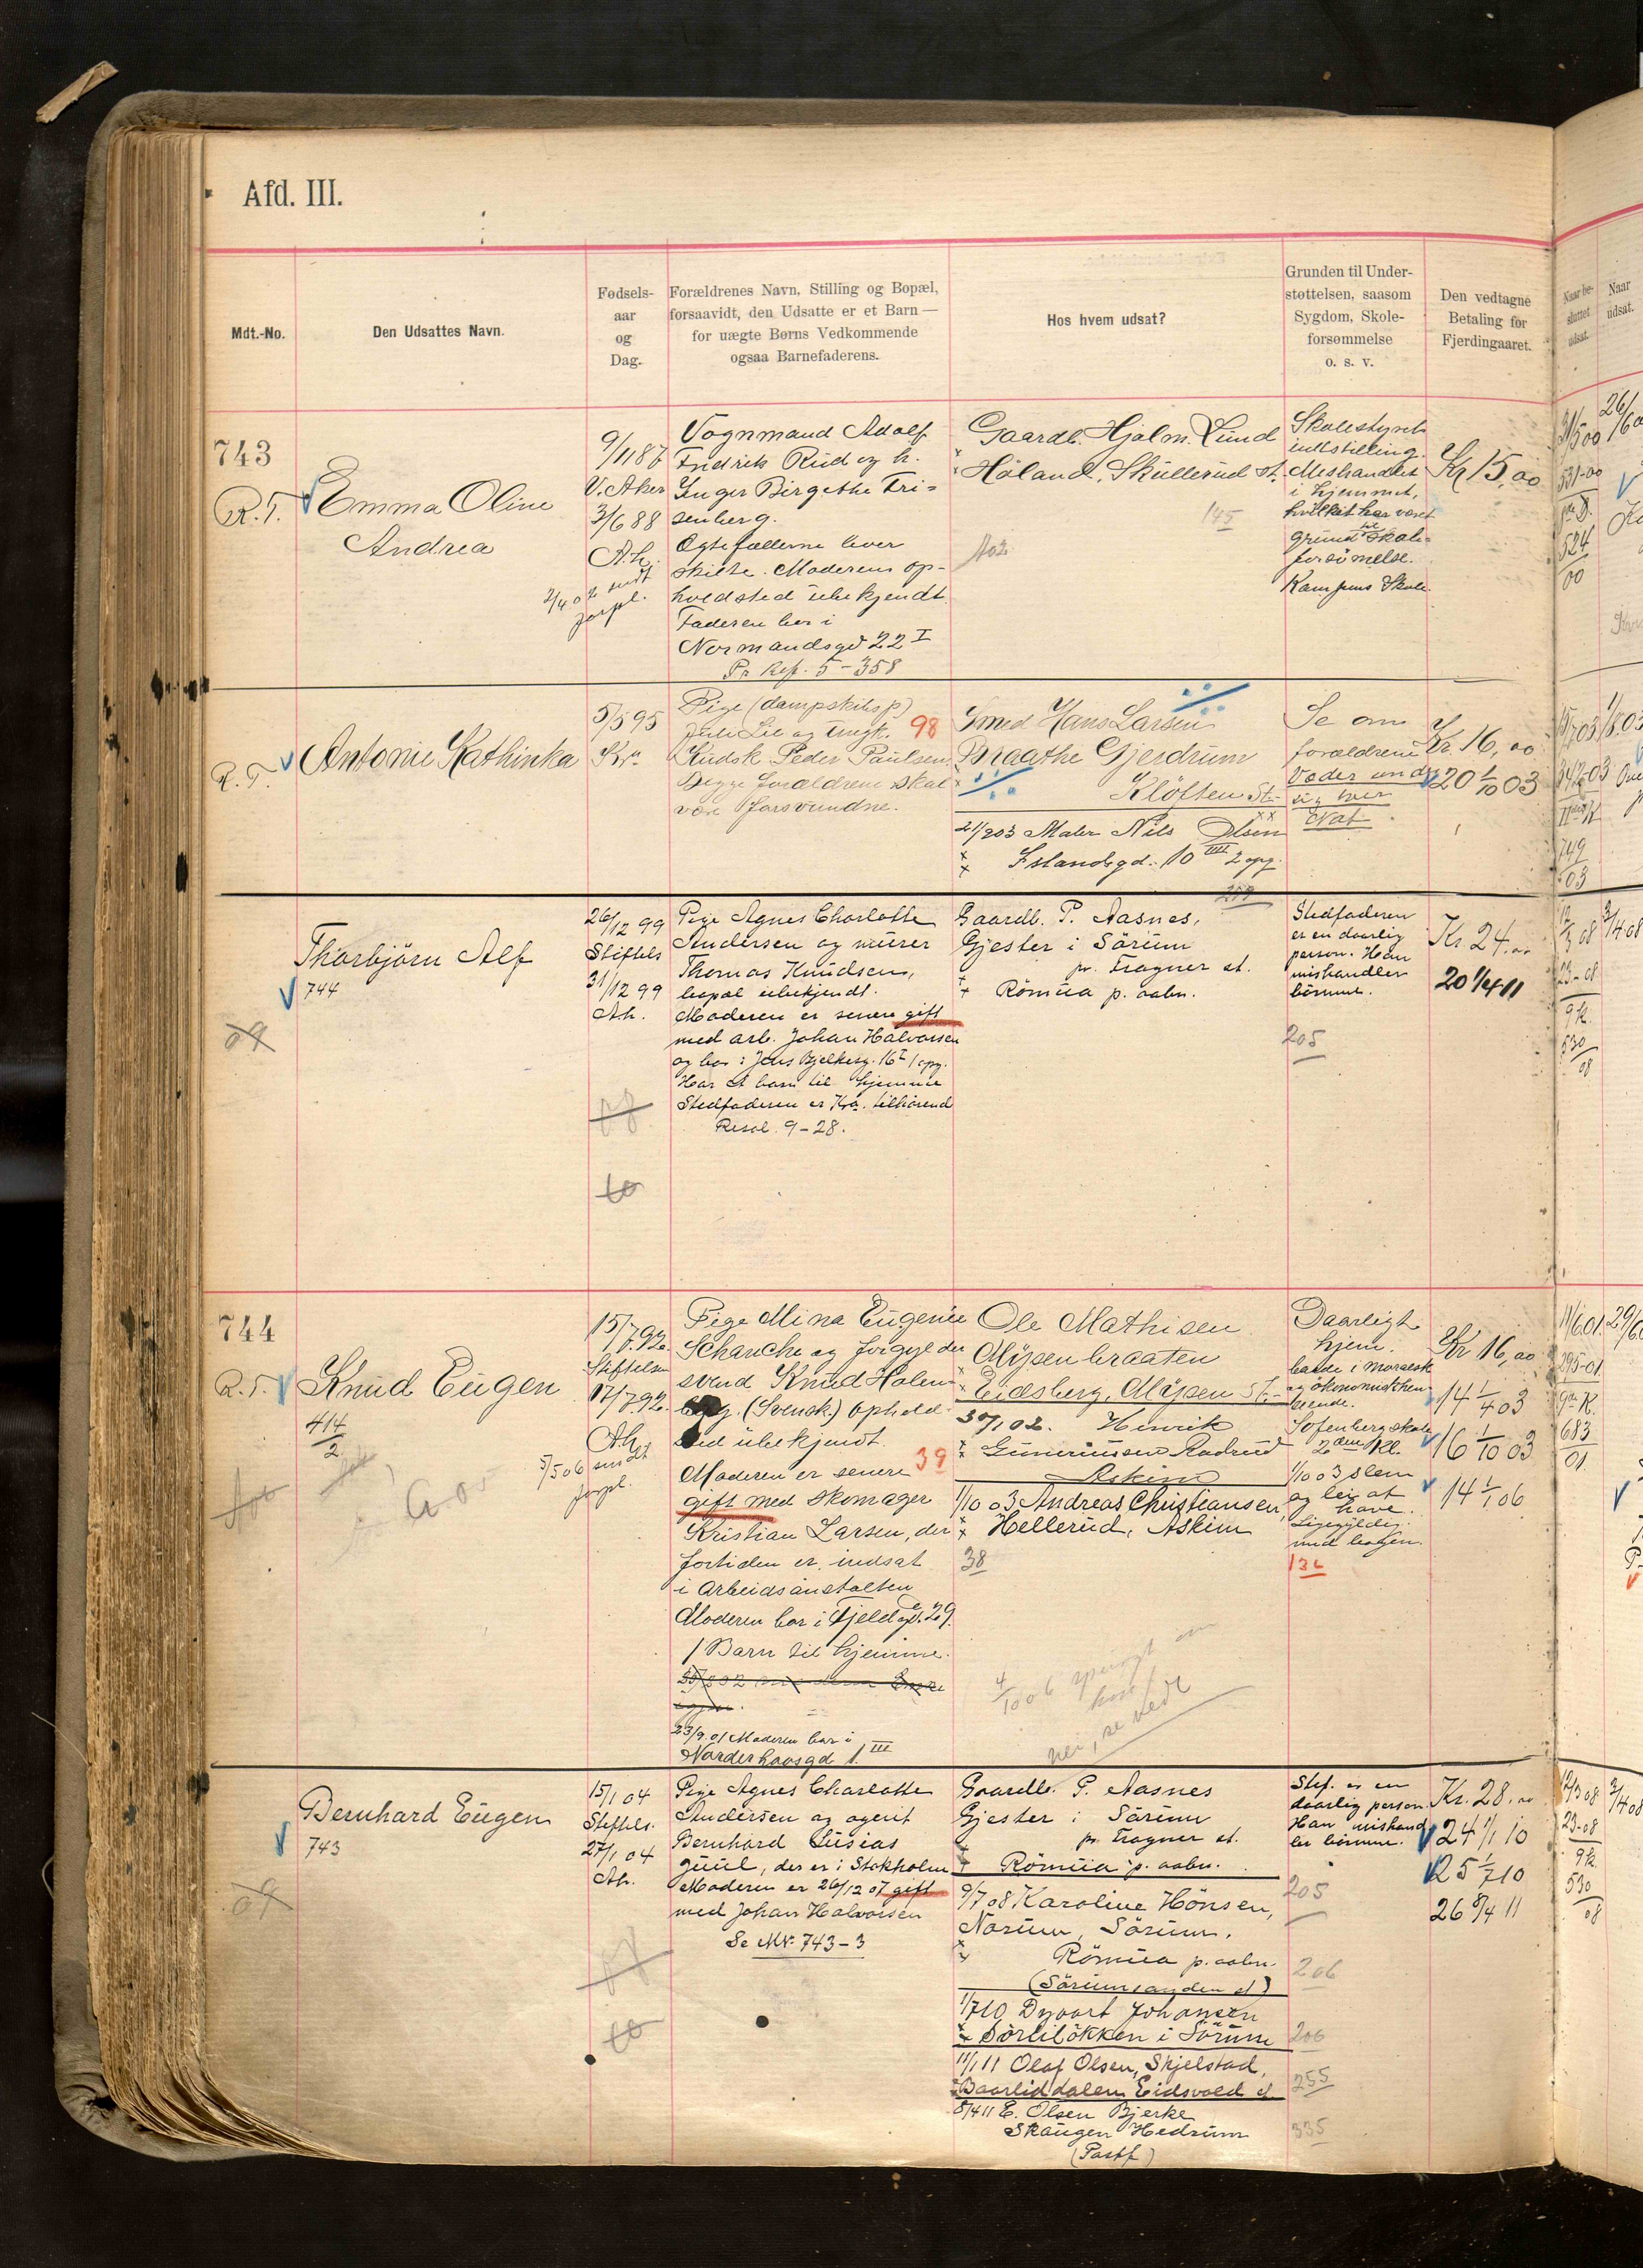 Afd. III.
Mdt.-No.
Den Udsattes Navn.
Fødsels-
aar
og
Dag.
Forældrenes Navn, Stilling og Bopæl,
forsaavidt, den Udsatte er et Barn —
for uægte Børns Vedkommende
ogsaa Barnefaderens.
Hos hvem udsat?
Grunden til Under-
støttelsen, saasom
Sygdom, Skole-
forsømmelse
o. s. v.
Den vedtagne
Betaling for
Fjerdingaaret.
Naar be-
sluttet
udsat.
Naar
udsat.
743
R. T.
Emma Oline
Andrea
9/11 87
V. Aker
3/6 88
A.k.
Vognmand Adolf
Fredrik Rud og h.
Inger Birgethe Fri-
senberg.
Ægtefællerne lever
skilte. Moderens op-
holdsted ubekjendt.
Faderen bor i
Normandsgd 22 I
Pr. Ref. 5-358
Gaardb. Hjalm. Lund
Høland, Skullerud st.
145
Skolestyrets
indstilling.
Mishandlet
i hjemmet,
hvilket har været
grund til skole-
forsømmelse.
Kampens Skole.
Kr 15,00
R. T.
Antonie Kathinka
5/5 95
Kr.a
Pige (dampskibsp)
Julie Lie og ungk. 98
Kudsk Peder Paulsen
Begge forældrene skal
være forsvundne.
Smed Hans Larsen
Braathe Gjerdrum
Kløften St.
21/9 03 Maler Nils Olsen
Islandsgd. 10 IIII 2 opg.
Se om
forældrene
Væder under
sig hver
Nat.
Kr. 16,00
20 1/10 03
Thorbjørn Alf
744
26/12 99
Stiftels
31/12 99
Ak.
Pige Agnes Charlotte
Andersen og murer
Thomas Knudsen,
bopæl ubekjendt.
Moderen er senere gift
med arb. Johan Halvorsen
og bor: Jens Bjelkesg. 16 I 1 opg.
Har et barn til hjemme
Stedfaderen er Kra. tilhørend
Resol. 9-28.
Gaardb. P. Aasnes,
Gjester i Sörum
pr. Frogner st.
Römua p. aabn.
Stedfaderen
er en daarlig
person. Han
mishandler
börnene.
205
Kr 24.00
20 1/4 11
744
R. T.
Knud Eugen
414
2
15/7 92
Stiftelsen
17/7 92
Ak.
5/5 06 sendt
forpl.
Pige Mina Eugenie
Schanche og forgylder
svend Knud Holem-
(Svensk) Ophold-
sted ubekjendt.
Moderen er senere 39
gift med skomager
Kristian Larsen, der
fortiden er indsat
i Arbeidsanstalten
Moderen bor i Fjeldgd. 29.
1 Barn til hjemme.
23/9 01 Moderen bor i
Norderhovsgd 1 III
Ole Mathisen
Mysenbraaten
Eidsberg, Mysen St.
30/1 02. Henrik
Gunerüssen Rodrud
Askim
1/10 03 Andreas Christiansen,
Hellerud, Askim
38
4/10 06 spurgt om
nei, se vedl
Daarligt
hjem.
baade i moralsk
og ökonomisk hen-
seende.
Sofienberg skole
2den Kl.
1/10 03 slem
og lei at
have.
Ligegyldig
med bogen.
Kr 16,00
14 1/4 03
16 1/10 03
14 1/1 06
Bernhard Eugen
743
15/1 04
Stiftels.
27/1 04
Ak.
Pige Agnes Charlotte
Andersen og agent
Bernhard Susias
Juul, der er i Stokholm
Moderen er 26/12 07 gift
med Johan Halvorsen
Se Mt. 743-3
Gaardb. P. Aasnes
Gjester i Sörum
pr. Frogner st.
Römua p. aabn.
9/7 08 Karoline Hönsen,
Norum, Sörum.
Römua p. aabn.
(Sörumsanden st)
1/7 10 Dyvart Johansen
Sörlilökken i Sörum
11/1 11 Olaf Olsen, Skjelstad,
Baarliddalen Eidsvold st
8/4 11 E. Olsen Bjerke
Skaugen Hedrum
(Postf)
Stef. er en
daarlig person.
Han mishand
ler börnene.
205
206
206
255
335
Kr. 28.00
24 1/1 10
25 1/7 10
26 8/4 11